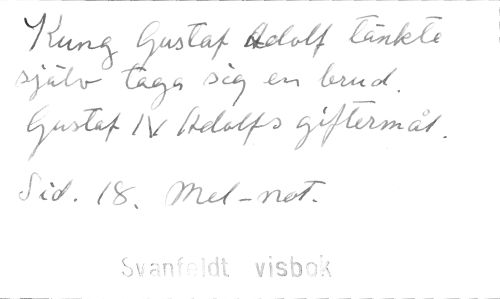 Kung Gustaf Adolf tänkte
själv taga sig en brud.
Gustaf IV Adolfs giftermål.
Sid. 18. Mel-not.
Svanfeldt visbok